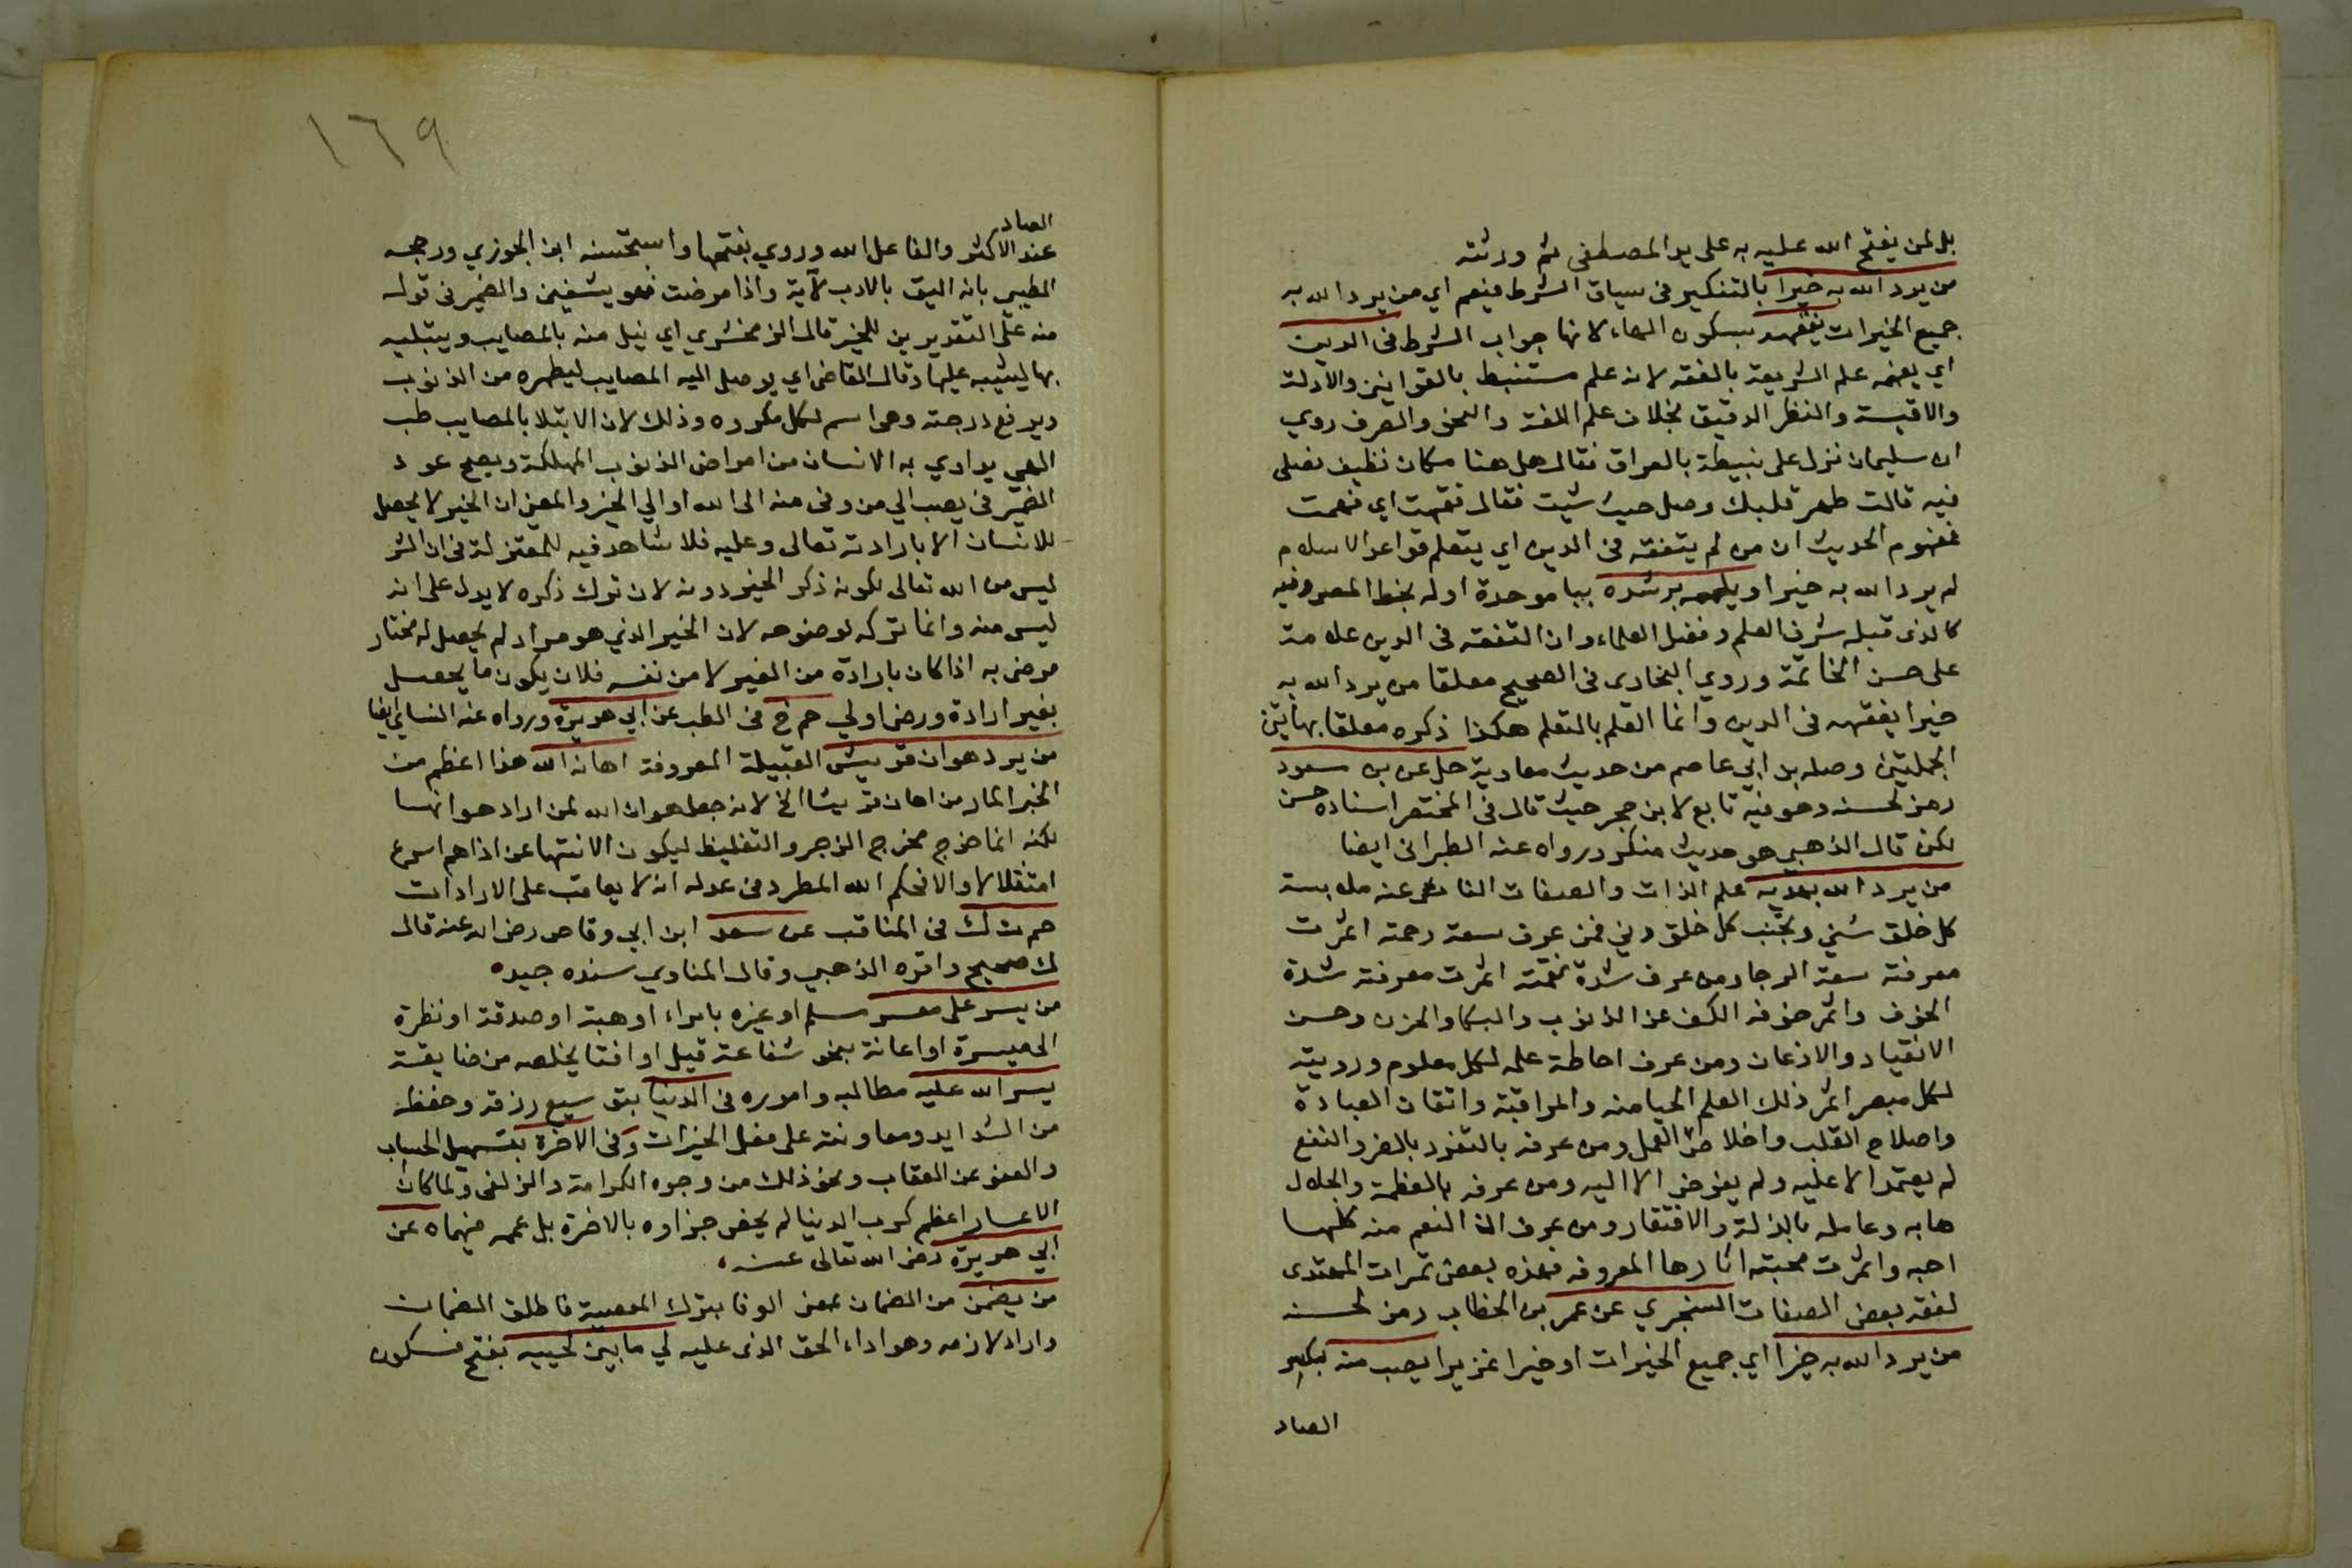 بل لمن يفتح الله عليه به على يد المصطفى ثم ورثته
من يرد الله به خيرا بالتنكير في سياق الشرط فيعم اي من يرد الله به
جميع الخيرات يفقهه بسكون الهاء لانها جواب الشرط في الدين
اي يفهمه علم الشريعة بالفقه لانه علم مستنبط بالقوانين والادلة
والاقيسة والنظر الدقيق بخلاف علم اللغة والنحو والصرف روي
ان سليمان نزل على نبيطة بالعراق فقال هل هنا مكان نظيف نصلي
فيه قالت طهر قلبك وصل حيث شيت فقال فقهت اي فهمت
فمفهوم الحديث ان من لم يتفقه في الدين اي يتعلم قواعد الاسلام
لم يرد الله به خيرا ويلهمه برشده ببا موحدة اوله بخط المص وفيه
كالذي قبله شرف العلم وفضل العلماء وان التفقه في الدين علامة
على حسن الخاتمة وروي البخاري في الصحيح معلقا من يرد الله به
خيرا يفقهه في الدين وانما العلم بالتعلم هكذا ذكره معلقا بهاتين
الجملتين وصله بن ابي عاصم من حديث معاوية حل عن بن مسعود
رمز لحسنه وهو فيه تابع لابن حجر حيث قال في المختصر اسناده حسن
لكن قال الذهبي هو حديث منكر ورواه عنه الطبراني ايضا
من يرد الله يهديه علم الذات والصفات الناشي عنه ملابسة
كل خلق سني وتجنب كل خلق دني فمن عرف سعة رحمته اثمرت
معرفته سعة الرجا ومن عرف شدة نقمته اثمرت معرفته شدة
الخوف واثمر خوفه الكف عن الذنوب والبكا والحزن وحسن
الانقياد والاذعان ومن عرف احاطة علمه لكل معلوم ورويته
لكل مبصر اثمر ذلك العلم الحيا منه والمراقبة واتقان العبادة
واصلاح القلب واخلاص العمل ومن عرفه بالتفرد بالضر والنفع
لم يعتمد الا عليه ولم يفوض الا اليه ومن عرفه بالعظمة والجلال
هابه وعامله بالذلة والافتقار ومن عرف ان النعم منه كلها
احبه واثمرت محبته اثارها المعروفه فهذه بعض ثمرات المهتدي
لفقه بعض الصفات السنجري عن عمر بن الخطاب رمز لحسنه
من يرد الله به خيرا اي جميع الخيرات او خيرا غزيرا يصب منه بكسر
الصاد
١٦٩
الصاد
عند الاكثر والفاعل الله وروي بفتحها واستحسنه ابن الجوزي ورجحه
الطيبي بانه اليق بالادب لآية واذا مرضت فهو يشفين والضمير في قوله
منه على التقديرين للخير قال الزمخشري اي نيل منه بالمصايب ويبتليه
بها ليثيبه عليها وقال القاضي اي يوصل اليه المصايب ليطهره من الذنوب
ويرفع درجته وهي اسم لكل مكروه وذلك لان الابتلا بالمصايب طب
الهي يداوي به الانسان من امراض الذنوب المهلكة ويصح عود
الضمير في يصب الي من وفي منه الى الله او الي الخير والمعني ان الخير لا يحصل
للانسان الا بارادته تعالى وعليه فلا شاهد فيه للمعتزلة في ان الشر
ليس من الله تعالى لكونه ذكر الخير دونه لان ترك ذكره لا يدل على انه
ليس منه وانما تركه لوضوحه لان الخير الذي هو مراد لم يحصل له مختار
مرضى به اذا كان بارادة من الغير لا من نفسه فلان يكون ما يحصل
بغير ارادة ورضى اولي حم خ في الطب عن ابي هريرة ورواه عنه النساي ايضا
من يرد هوان قريش القبيلة المعروفة اهانه الله هذا اعظم من
الخبر المار من اهان قريشا الخ لانه جعل هوان الله لمن اراد هوانها
لكنه انما خرج مخرج الزجر والتغليظ ليكون الانتها عن اذاهم اسرع
امتثالا والا فحكم الله المطرد في عدله انه لا يعاقب على الارادات
حم ت ك في المناقب عن سعد ابن ابي وقاص رضي الله عنه قال
ك صحيح واقره الذهبي وقال المناوي سنده جيد
من يسر على معسر مسلم او غيره بابراء او هبة او صدقة او نظرة
الى ميسرة او اعانة بنحو شفاعة قيل او افتا يخلصه من ضايقة
يسر الله عليه مطالبه واموره في الدنيا بتوسيع رزقه وحفظه
من الشدايد ومعاونته على فعل الخيرات وفي الاخرة بتسهيل الحساب
والعفو عن العقاب ونحو ذلك من وجوه الكرامة والزلفى ولما كان
الاعسار اعظم كرب الدنيا لم يخص جزاوه بالاخرة بل عممه فيهما ه عن
ابي هريرة رضي الله تعالى عنه
من يضمن من الضمان بمعنى الوفا بترك المعصية فاطلق الضمان
واراد لازمه وهو اداء الحق الذي عليه لي ما بين لحييه بفتح فسكون